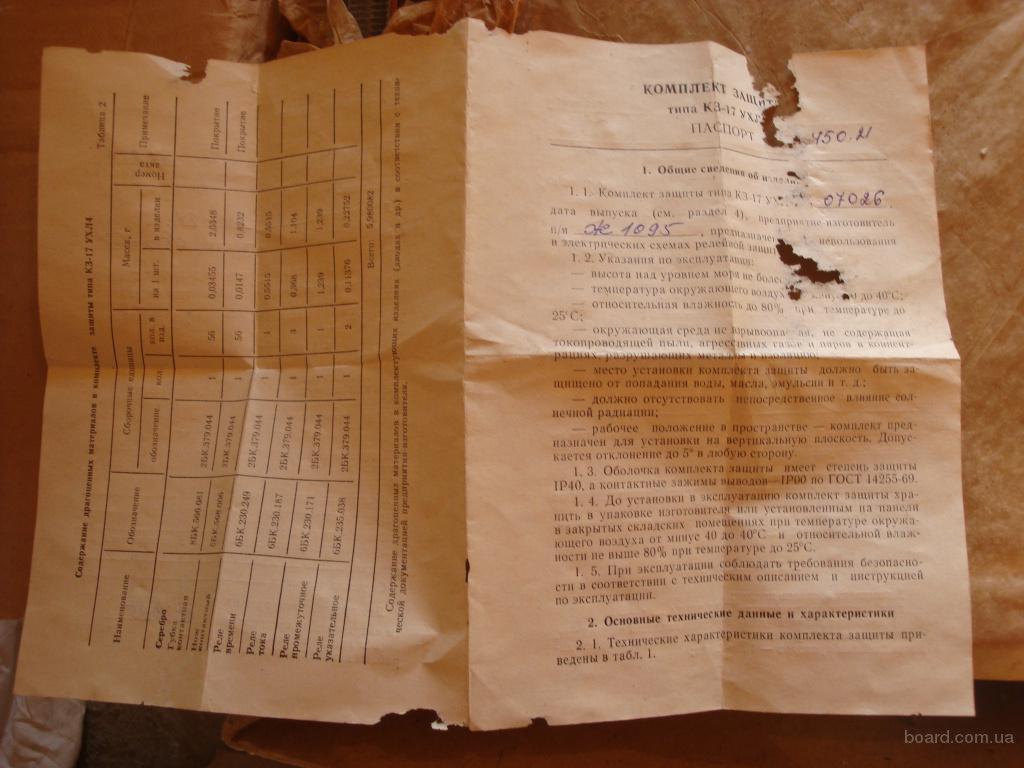 Таблица 2
Содержание драгоценных материалов в комплекте защиты типа КЗ-17 УХЛ4
Наименование Обозначение Сборочные единицы Масса, г Номер акта Примечание
обозначение кол. кол. в изд. на 1 шт. в изделии
Серебро
Губка контактная 8БК.566.081 2БК.379.044 1 56 0,03455 2,0348 Покрытие
контактный 2БК.379.044 1 56 0,0147 0,8232 Покрытие
Реле времени 6БК.230.249 2БК.379.044 1 1 0,5515 0,5515
Реле тока 6БК.230.187 2БК.379.044 1 3
Реле промежуточное 6БК.230.171 2БК.379.044 1 1 1,239 1,239
Реле указательное 6БК.235.038 2БК.379.044 1 2 0,11376 0,22752
Всего: 5,980082
Содержание драгоценных материалов в комплектующих изделиях (диодах и др.) в соответствии с техни-
ческой документацией предприятия-изготовителя.
КОМПЛЕКТ ЗАЩИТЫ
типа КЗ-17 УХЛ
ПАСПОРТ 450.М
1. Общие сведения об изделии
1. 1. Комплект защиты типа КЗ-17 07026
дата выпуска (см. раздел 4), предприятие-изготовитель
п/я 1095, использования
в электрических схемах релейной
1. 2. Указания по эксплуатации:
— высота над уровнем моря не более
— температура окружающего воздуха до 40°С;
— относительная влажность до 80% при температуре до
25°С;
— окружающая среда не содержащая
токопроводящей пыли, агрессивных газов и паров в концент-
рациях, разрушающих металлы и изоляцию;
— место установки комплекта защиты должно быть за-
щищено от попадания воды, масла, эмульсии и т. д.;
— должно отсутствовать непосредственное влияние сол-
нечной радиации;
— рабочее положение в пространстве — комплект пред-
назначен для установки на вертикальную плоскость. Допус-
кается отклонение до 5° в любую сторону.
1. 3. Оболочка комплекта защиты имеет степень защиты
IP40, а контактные зажимы выводов—IP00 по ГОСТ 14255-69.
1. 4. До установки в эксплуатацию комплект защиты хра-
нить в упаковке изготовителя или установленным на панели
в закрытых складских помещениях при температуре окружа-
ющего воздуха от минус 40 до 40°С и относительной влаж-
ности не выше 80% при температуре до 25°С.
1. 5. При эксплуатации соблюдать требования безопасно-
сти в соответствии с техническим описанием и инструкцией
по эксплуатации.
2. Основные технические данные и характеристики
2. 1. Технические характеристики комплекта защиты при-
ведены в табл. 1.
board.com.ua